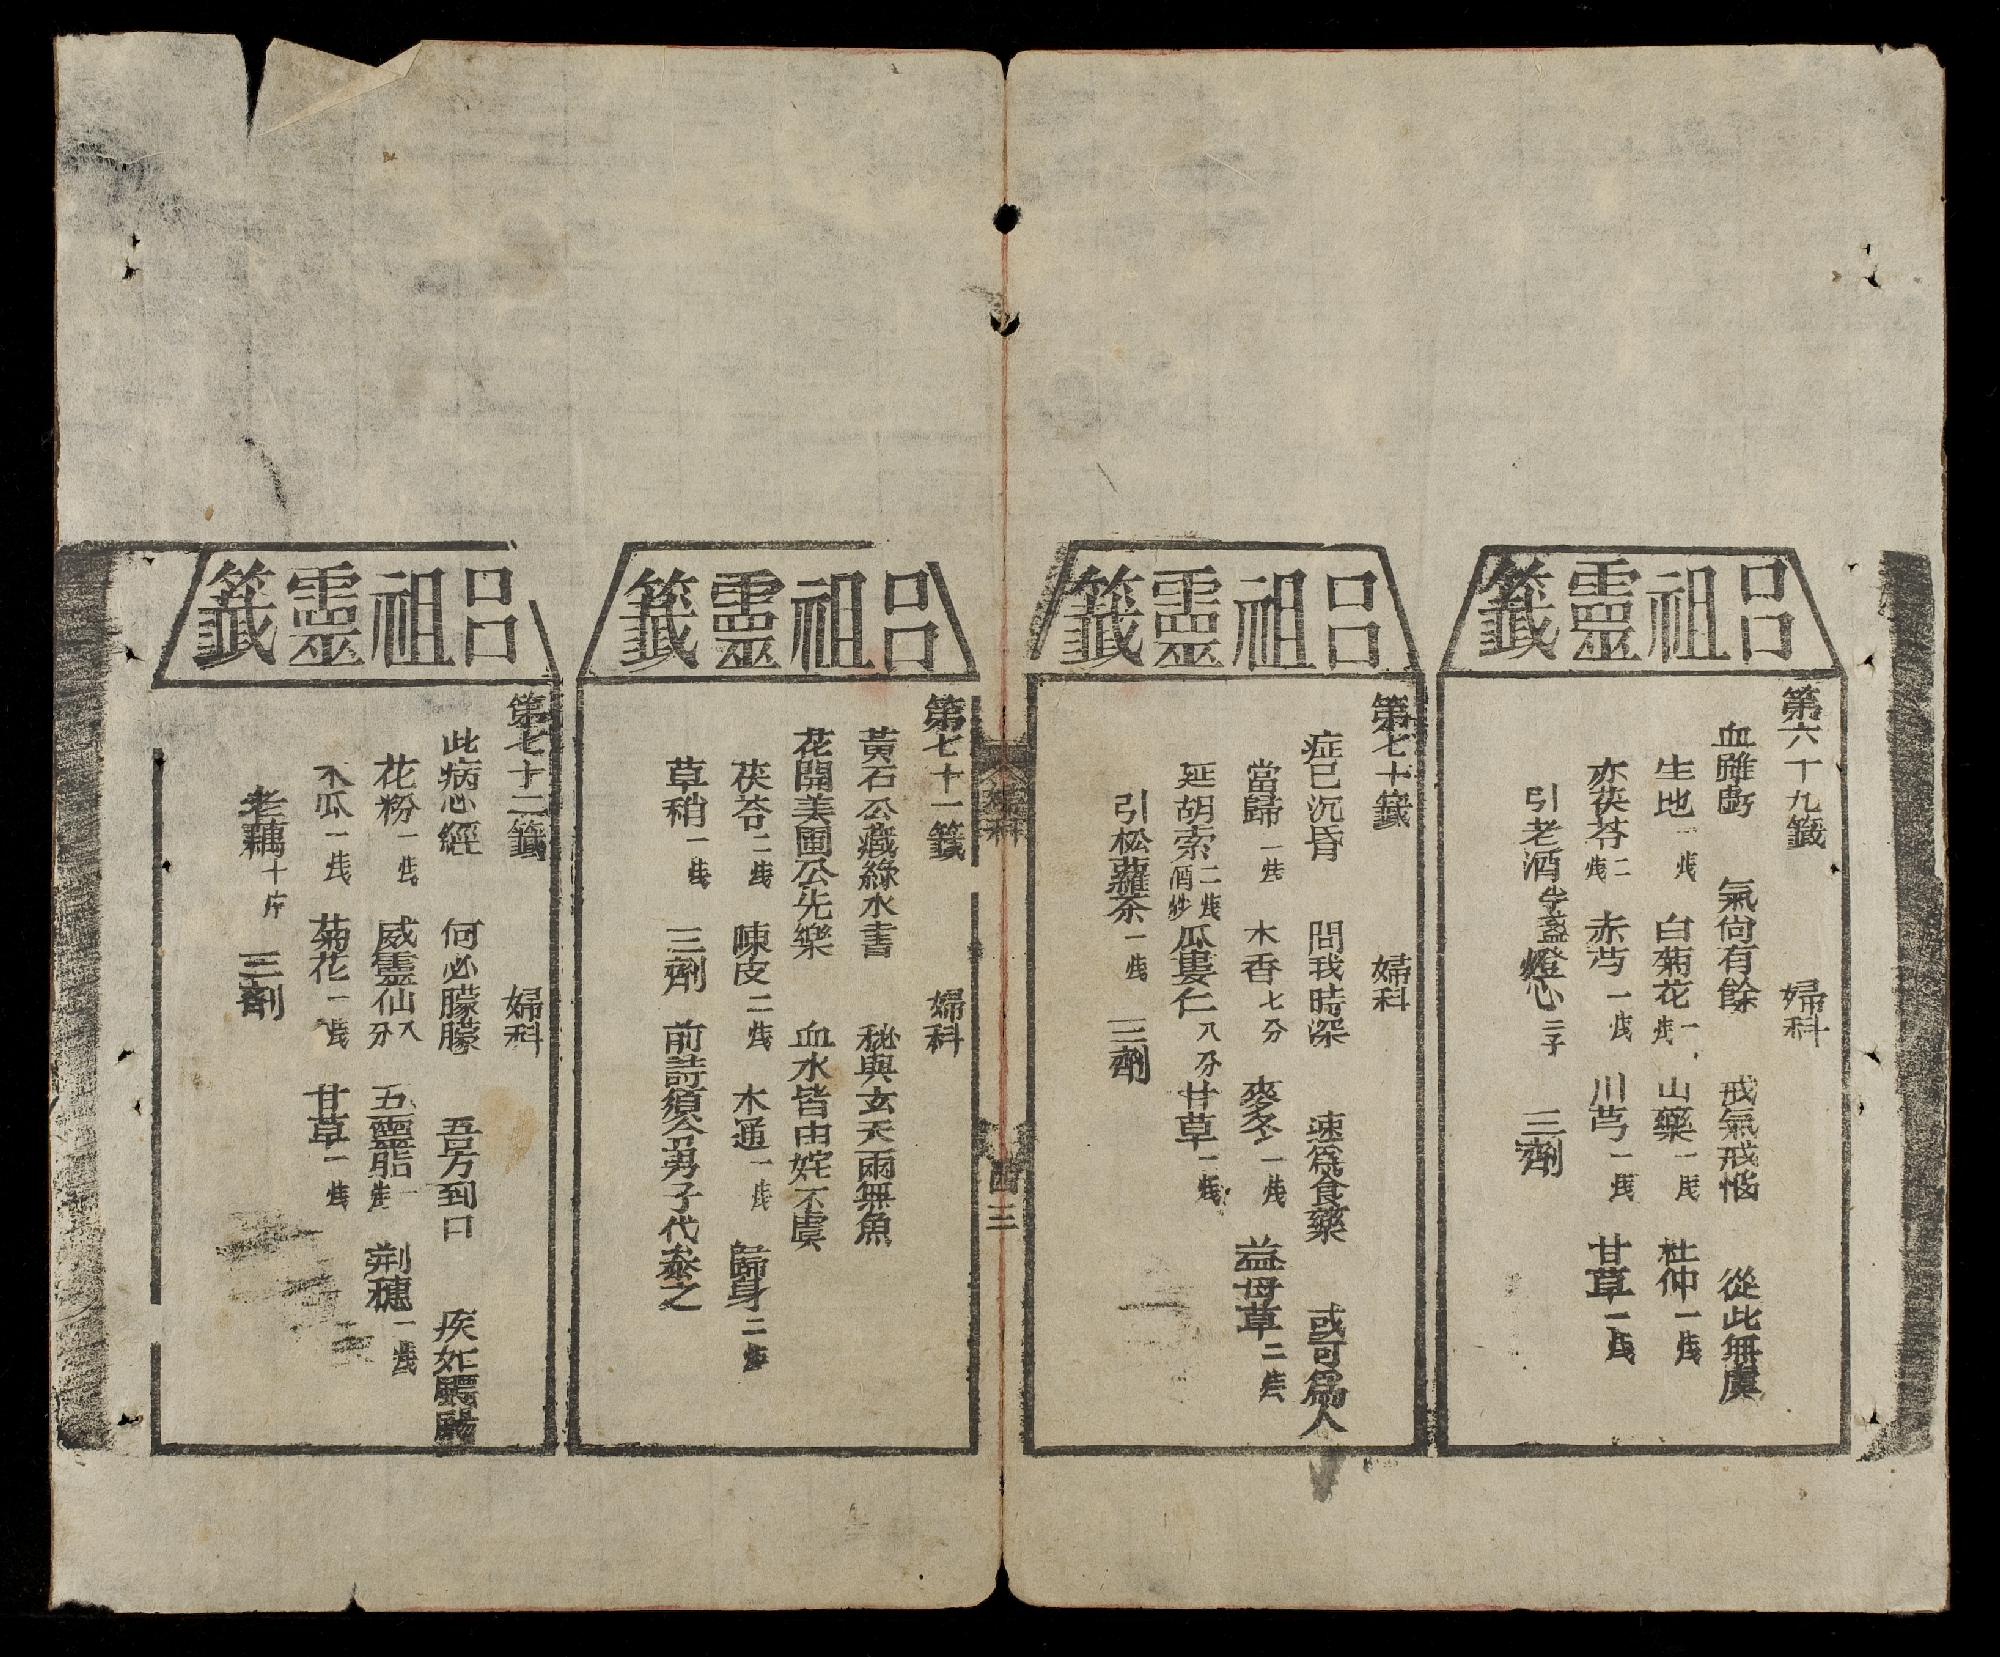 呂祖靈籤
第六十九籤 婦科
血雖虧 氣尙有餘 戒氣戒惱 從此無虞
生地一戋 白菊花一戋 山藥一戋 杜仲一戋
赤茯苓二戋 赤芍一戋 川芎一戋 甘草一戋
引老酒半盞燈心二子 三劑
呂祖靈籤
第七十籤 婦科
症已沉昏 問我時深 速爲食藥 或可爲人
當歸一戋 木香七分 麥冬一戋 益母草二戋
延胡索二戋酒炒 瓜蔞仁八分 甘草一戋
引松蘿茶一戋 三劑
婦科
四三
呂祖靈籤
第七十一籤 婦科
黃石公藏綠水書 秘與玄天雨無魚
花開美圃公先樂 血水皆由姹不虞
茯苓二戋 陳皮二戋 木通一戋 歸身二戋
草稍一戋 三劑 前詩須令男子代叅之
呂祖靈籤
第七十二籤 婦科
此病心經 何必朦朦 吾方到口 疾如飄颺
花粉一戋 威靈仙八分 五靈脂一戋 荆穗一戋
木瓜一戋 菊花一戋 甘草一戋
老藕十片 三劑